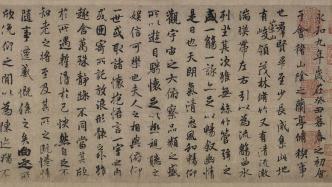 永和九年歲在癸丑暮春之初會
于會稽山陰之蘭亭脩稧事
也群賢畢至少長咸集此地
有崇山峻領茂林脩竹又有清流激
湍暎帶左右引以為流觴曲水
列坐其次雖無絲竹管弦之
盛一觴一詠亦足以暢敘幽情
是日也天朗氣清惠風和暢仰
觀宇宙之大俯察品類之盛
所以遊目騁懷足以極視聽之
娛信可樂也夫人之相與俯仰
一世或取諸懷抱悟言一室之內
或因寄所託放浪形骸之外雖
趣舍萬殊靜躁不同當其欣
於所遇蹔得於己怏然自足不
知老之將至及其所之既惓情
隨事遷感慨係之矣向之所
欣俛仰之閒以為陳迹猶不